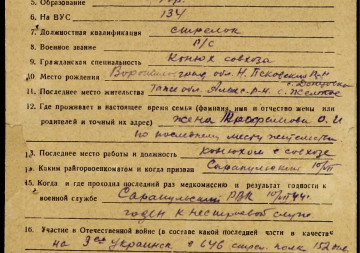 5. Образование
6. На ВУС 134
7. Должностная квалификация стрелок
8. Военное звание р/с
9. Гражданская специальность Конюх совхоза
10 Место рождения обл. Н. Псковский р-н
11. Последнее место жительства обл.
12. Где проживает в настоящее время семья (фамилия, имя и отчество жены или
родителя и точный их адрес) жена О. И
по последнему месту жительства
13. Последнее место работы и должность конюхом в совхозе
Каким райгорвоенкоматом и когда призван Сарапульским
15. Когда и где проходил последний раз медкомиссию и результат годности к
военной службе Сарапульский РВК
годен к нестроевой службе
16. Участие в Отечественной войне (в составе какой последней части и в качестве
на 3ем украинск в 646 стрел. полк 152